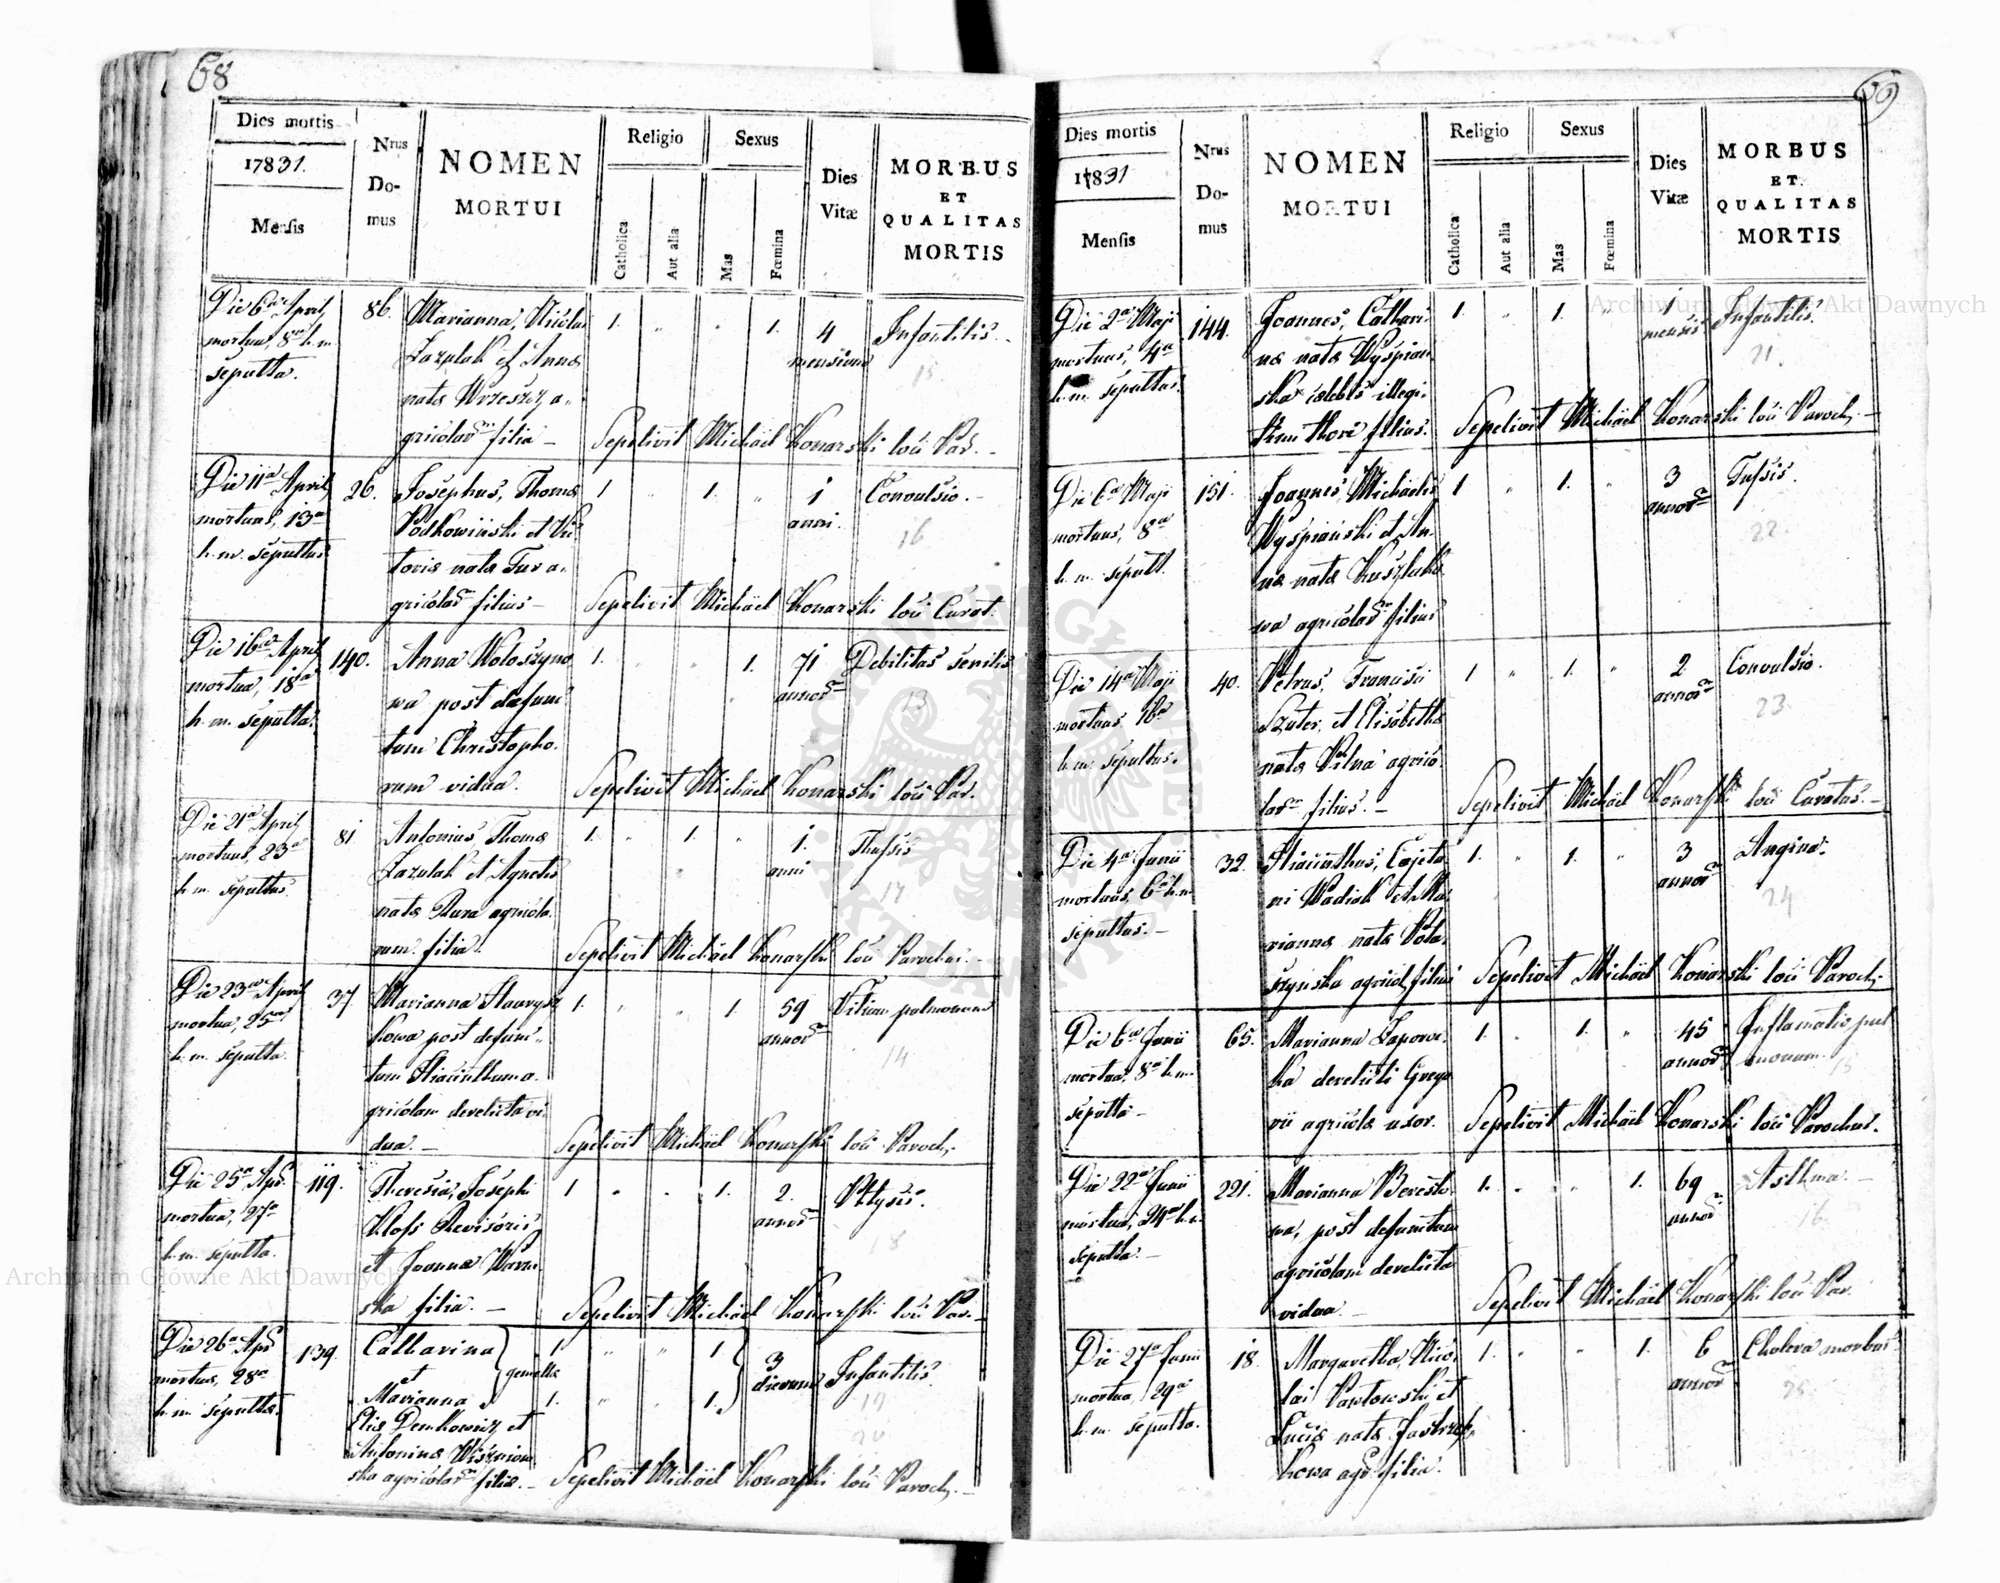 68
Dies mortis
17831.
Mensis
Nrus
Do-
mus
NOMEN
MORTUI
Religio
Catholica
Aut alia
Sexus
Mas
Fœmina
Dies
Vitæ
MORBUS
ET
QUALITAS
MORTIS
Die 6ta April
mortua, 8va h. m.
sepulta.
86.
Marianna, Nicolai
Lazulak et Anna
nata Wrzeszcz a-
gricolar. filia —
1. " " 1.
4
mensium
Infantilis.
15
Sepelivit Michäel Konarski loci Par.
Die 11a April
mortuus, 13a
h. m. sepultus
26.
Josephus, Thoma
Podkowinski et Vic
toria nata Tur a-
gricolar. filius —
1 " 1. "
1
anni.
Convulsio. -
16
Sepelivit Michäel Konarski loci Curat.
Die 16a April
mortua, 18a
h. m. sepulta.
140.
Anna Woloszyno
wa post defunc
tum Christopho-
rum vidua.
1. " " 1.
71
annor.
Debilitas senilis
13
Sepelivit Michäel Konarski loci Par.
Die 21a April
mortuus, 23a
h. m. sepultus.
81
Antonius, Thoma
Lazulak et Agnetis
nata Rura agricola
rum filia.
1. " 1. "
1.
anni
Thussis
17
Sepelivit Michäel Konarski loci Parochus. -
Die 23a April
mortua, 25a
h. m. sepulta.
37.
Marianna
kowa post defunc-
tum Hiacinthum a-
gricolam derelicta vi
dua. —
1. " " 1.
59
annor.
Vitium pulmonum
14
Sepelivit Michäel Konarski loci Paroch.
Die 25a Apr.
mortua, 27a
h. m. sepulta.
119.
Theresia, Josephi
Kloss Revisoris
et Joanna
ska filia. —
1 " " 1.
2.
annor.
Phtysis.
18
Sepelivit Michäel Konarski loci Par. -
Die 26a Apr
mortua, 28a
h. m. sepulta.
139.
Catharina
et
Marianna
gemella
Elia Demkowicz et
Antonina
ska agricolar. filia. —
1. " " 1.
1. " " 1.
3
dierum
Infantilis.
19
20
Sepelivit Michäel Konarski loci Paroch. -
69
Dies mortis
17831
Mensis
Nrus
Do-
mus
NOMEN
MORTUI
Religio
Catholica
Aut alia
Sexus
Mas
Fœmina
Dies
Vitæ
MORBUS
ET
QUALITAS
MORTIS
Die 2a Maji
mortuus, 4a
h. m. sepultus.
144.
Joannes, Cathari-
na nata Wyspian
ska celebs illegi-
timi thori filius.
1. " 1. "
1
mensis
Infantilis.
21.
Sepelivit Michäel Konarski loci Paroch. —
Die 6a Maji
mortuus, 8a
h. m. sepult.
151.
Joannes, Michaelis
Wyspianski et An-
na nata
wa agricolar. filius
1 " 1. "
3
annor.
Tussis.
22.
Die 14a Maji
mortuus 16a
h. m. sepultus.
40.
Petrus, Francisci
Szuter, et Elisabetha
nata Pilna agrico
lar. filius. —
1 " 1. "
2
annor.
Convulsio.
23.
Sepelivit Michäel Konarski loci Curatus. —
Die 4a Junii
mortuus, 6a h. m.
sepultus. —
32.
Hiacinthus, Cajeta-
ni Wadiak et Ma-
rianna nata Pola-
szynska agricol. filius
1. " 1. "
3
annor.
Angina.
24
Sepelivit Michäel Konarski loci Paroch.
Die 6a Junii
mortua, 8a h. m.
sepulta —
65.
Marianna Lapows-
ka derelicti Grego
rii agricola uxor.
1. " 1. "
45
annor.
Inflamatio pul
monum.
15
Sepelivit Michäel Konarski loci Parochus.
Die 22a Junii
mortua, 24a h. m.
sepulta. —
221.
Marianna
wa, post defunctum
agricolam derelicta
vidua. —
1. " " 1.
69
annor
Asthma. —
16.
Sepelivit Michäel Konarski loci Par.
Die 27a Junii
mortua, 29a
h. m. sepulta.
18.
Margaretha, Nico-
lai Pawlowski et
Lucia nata Jastrzęb-
kowa agr. filia.
1. " " 1.
6
annor.
Cholera morbus.
25.
Archiwum Główne Akt Dawnych
Archiwum Główne Akt Dawnych
ARCHIWUM GŁÓWNE AKT DAWNYCH